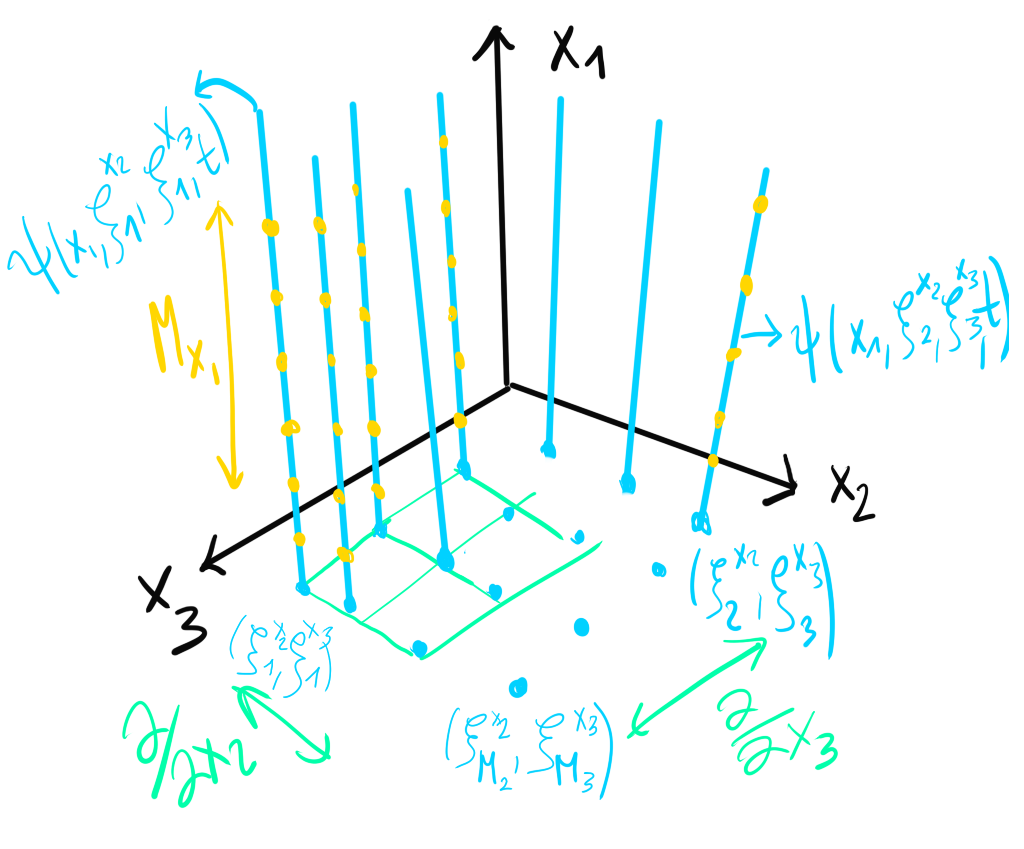 x1
ψ(x1, ξ1^x2, ξ1^x3, t)
Mx1
ψ(x1, ξ2^x2, ξ3^x3, t)
x2
x3
(ξ2^x2, ξ3^x3)
(ξ1^x2, ξ1^x3)
∂/∂x2
(ξM2^x2, ξM3^x3)
∂/∂x3